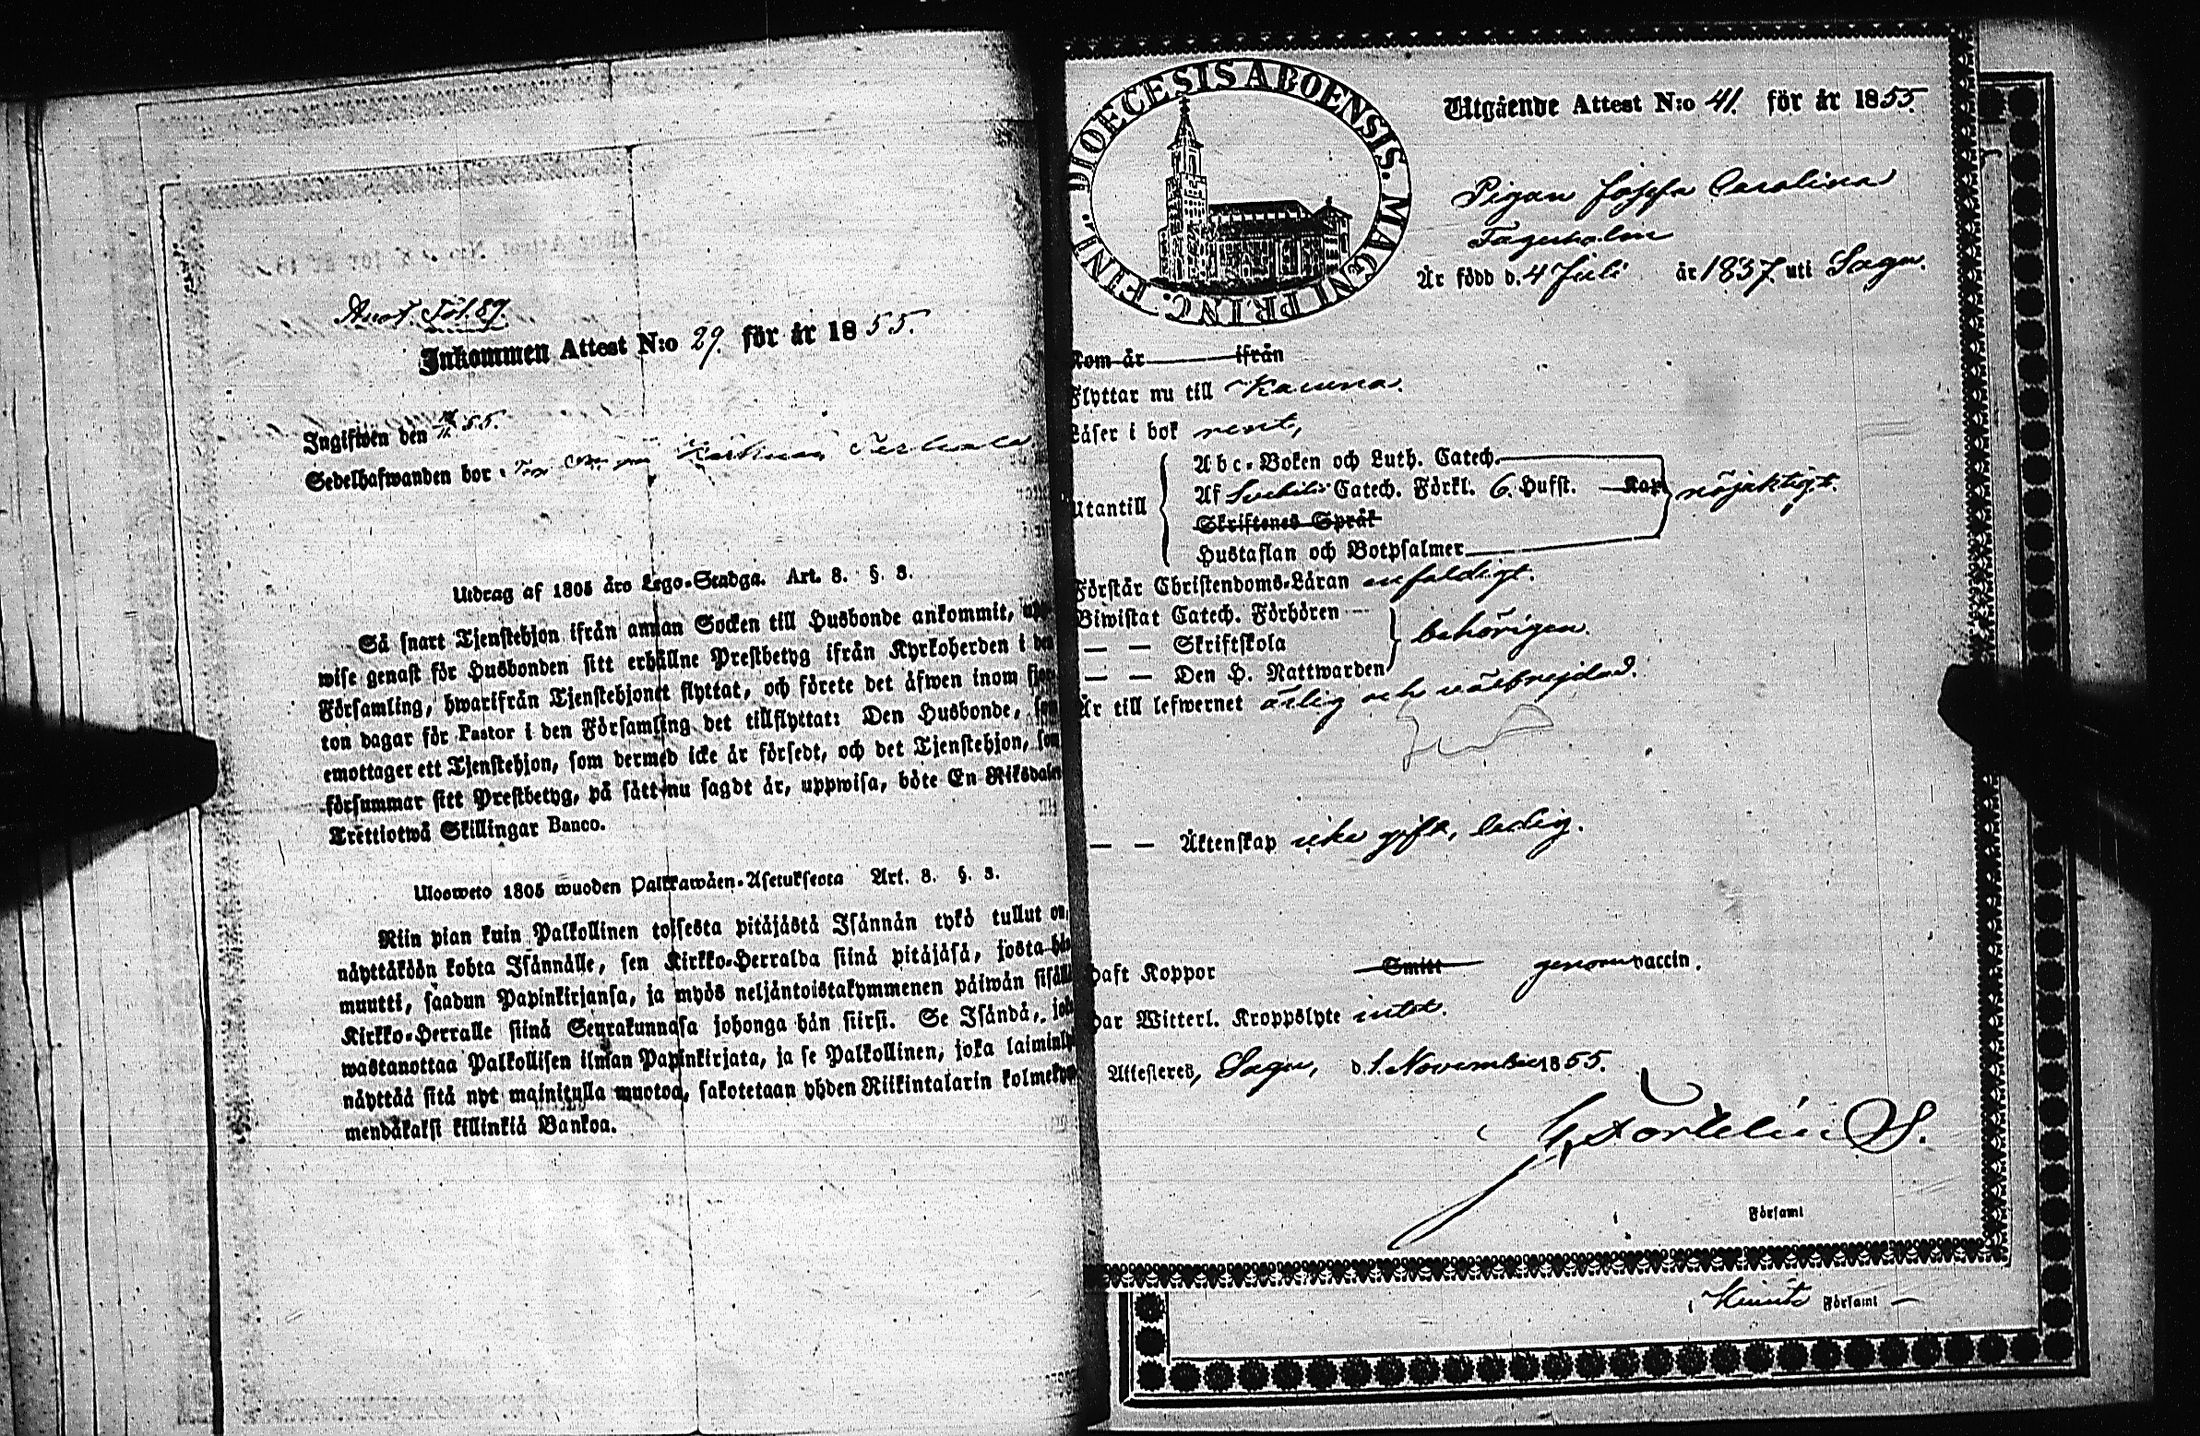 Fol. 89.
Inkommen Attest N:o 29. för år 1855.
Ingifwen den 55.
Sedelhafwanden bor
Utdrag af 1805 års Lego-Stadga. Art. 8. §. 3.
Så snart Tjenstehjon ifrån annan Socken till Husbonde ankommit, upp-
wise genast för Husbonden sitt erhållne Prestbetyg ifrån Kyrkoherden i den
Församling, hwarifrån Tjenstehjonet flyttat, och förete det äfwen inom fjor-
ton dagar för Pastor i den Församling det tillflyttat: Den Husbonde, som
emottager ett Tjenstehjon, som dermed icke är försedt, och det Tjenstehjon, som
försummar sitt Prestbetyg, på sätt nu sagdt är, uppwisa, böte En Riksdaler
Trettiotwå Skillingar Banco.
Ulosweto 1805 wuoden Palkkawäen-Asetuksesta Art. 8. §. 3.
Niin pian kuin Palkollinen toisesta pitäjästä Isännän tykö tullut on,
näyttäköön kohta Isännälle, sen Kirkko-Herralda siinä pitäjäsä, josta hän
muutti, saadun Papinkirjansa, ja myös neljäntoistakymmenen päiwän sisällä
Kirkko-Herralle siinä Seurakunnasa johonga hän siirsi. Se Isändä, joka
wastanottaa Palkollisen ilman Papinkirjata, ja se Palkollinen, joka laiminlyö
näyttää sitä nyt mainitulla muotoa, sakotetaan yhden Riikintalarin kolmekym-
mendäkaksi killinkiä Bankoa.
DIOECESIS ABOENSIS. MAGNI PRINC. FINL.
Utgående Attest N:o 41. för år 1855.
Pigan Josefa Carolina
Fagerholm
Är född d. 4 Juli år 1837 uti Sagu.
Kom år ifrån
Flyttar nu till Karuna.
Läser i bok rent,
Utantill
Abc-Boken och Luth. Catech.
Af Svebilii Catech. Förkl. 6. Hufst. Kap. nöjaktigt.
Skriftenes Språk
Hustaflan och Botpsalmer
Förstår Christendoms-Läran enfaldigt.
Biwistat Catech. Förhören
— — Skriftskola behörigen.
— — Den H. Nattwarden
Är till lefwernet ärlig och välfrejdad.
— — Äktenskap icke gift, ledig.
Haft Koppor Smitt genom vaccin.
Har Witterl. Kroppslyte intet.
Attesteras, Sagu, d. 1. November 1855.
Församl
i Kimito Församl